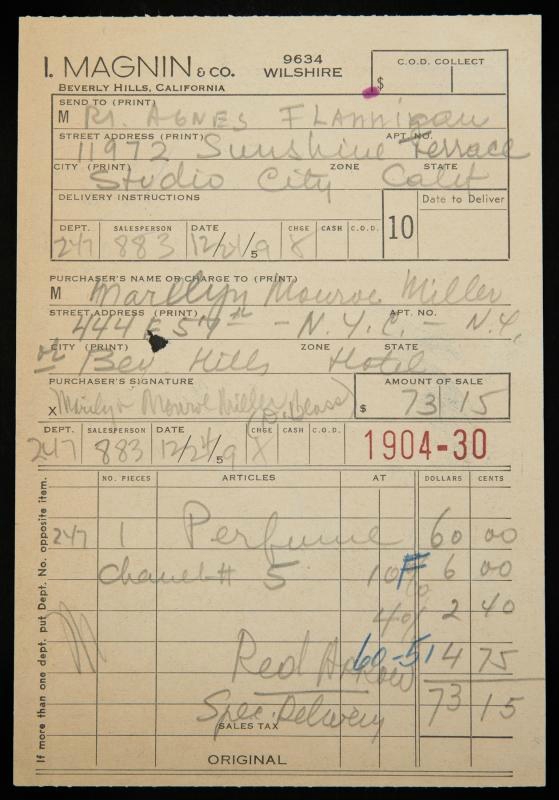 I. MAGNIN & CO. 9634 WILSHIRE
BEVERLY HILLS, CALIFORNIA
C.O.D. COLLECT
$
SEND TO (PRINT)
M AGNES FLANNIGAN
STREET ADDRESS (PRINT) APT. NO.
11972 Sunshine Terrace
CITY (PRINT) ZONE STATE
Studio City Calif
DELIVERY INSTRUCTIONS
10
Date to Deliver
DEPT. SALESPERSON DATE CHGE CASH C.O.D.
247 883 12/21/59 X
PURCHASER'S NAME OR CHARGE TO (PRINT)
M Marilyn Monroe Miller
STREET ADDRESS (PRINT) APT. NO.
444 E 57th - N.Y.C. - N.Y.
CITY (PRINT) ZONE STATE
or Bev Hills Hotel
PURCHASER'S SIGNATURE
AMOUNT OF SALE
X Marilyn Monroe Miller
$ 73 15
DEPT. SALESPERSON DATE CHGE CASH C.O.D.
247 883 12/21/59 X
1904-30
NO. PIECES ARTICLES AT DOLLARS CENTS
247 1 Perfume 60 00
Chanel # 5 10% F 6 00
4% 2 40
Red Arrow 60-51 4 75
Spec. Delivery 73 15
SALES TAX
ORIGINAL
If more than one dept. put Dept. No. opposite item.